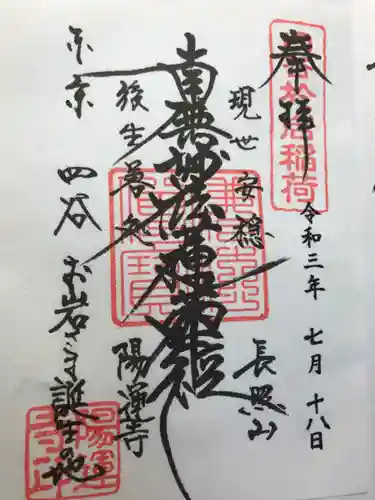 奉拝
於岩稲荷
令和三年 七月 十八日
現世安穏
長照山
南無妙法蓮華経
後生善処
陽運寺
東京 四谷 お岩さま誕生の地
陽運寺印